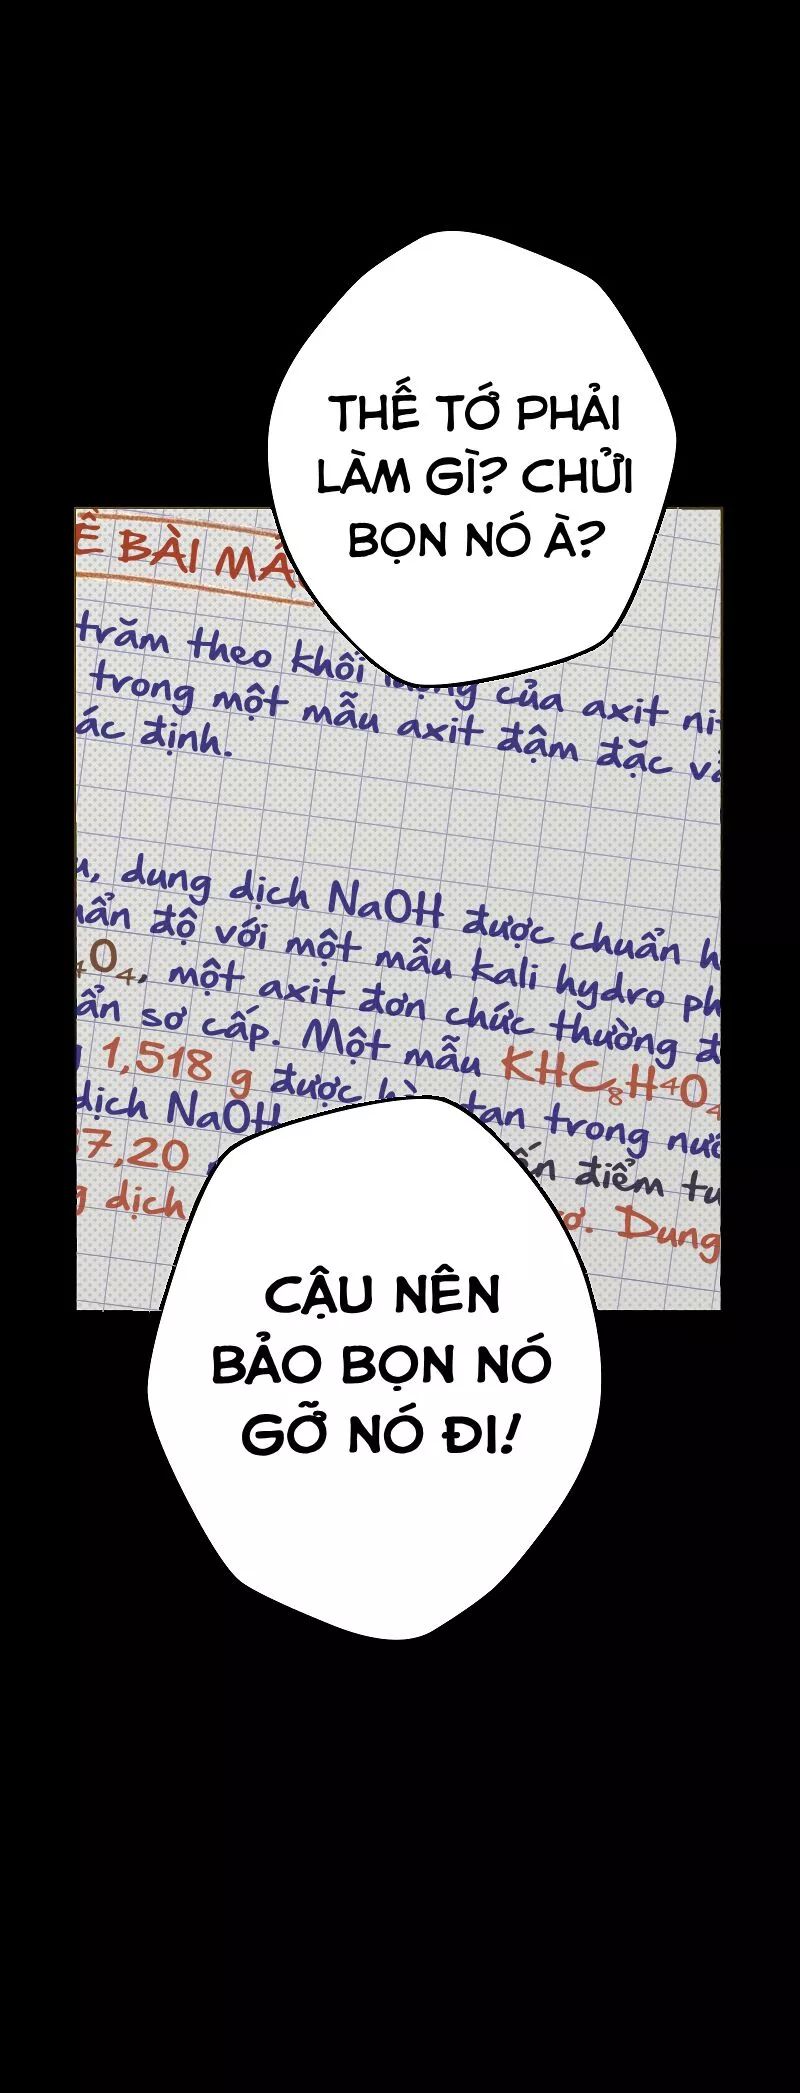 THẾ TỚ PHẢI
LÀM GÌ? CHỬI
BỌN NÓ À?
Ề BÀI MẪ
trăm theo khối lượng của axit ni
trong một mẫu axit đậm đặc v
ác định.
dung dịch NaOH được chuẩn h
uẩn độ với một mẫu kali hydro ph
₄O₄, một axit đơn chức thường đ
ẩn sơ cấp. Một mẫu KHC₈H⁴O₄
1,518 g được hòa tan trong nướ
dịch NaOH
7,20 đến điểm tư
g dịch ơ. Dung
CẬU NÊN
BẢO BỌN NÓ
GỠ NÓ ĐI!